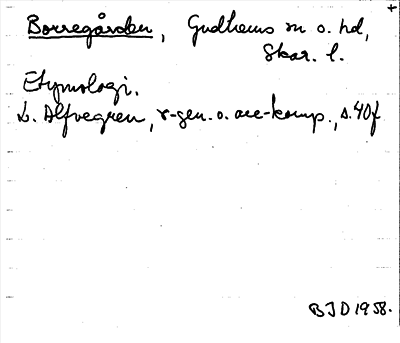 +
Borregården, Gudhems sn o. hd,
Skar. l.
Etymologi.
L. Alfvegren, r-gen. o. are-komp., s. 40 f
BJD 1958.